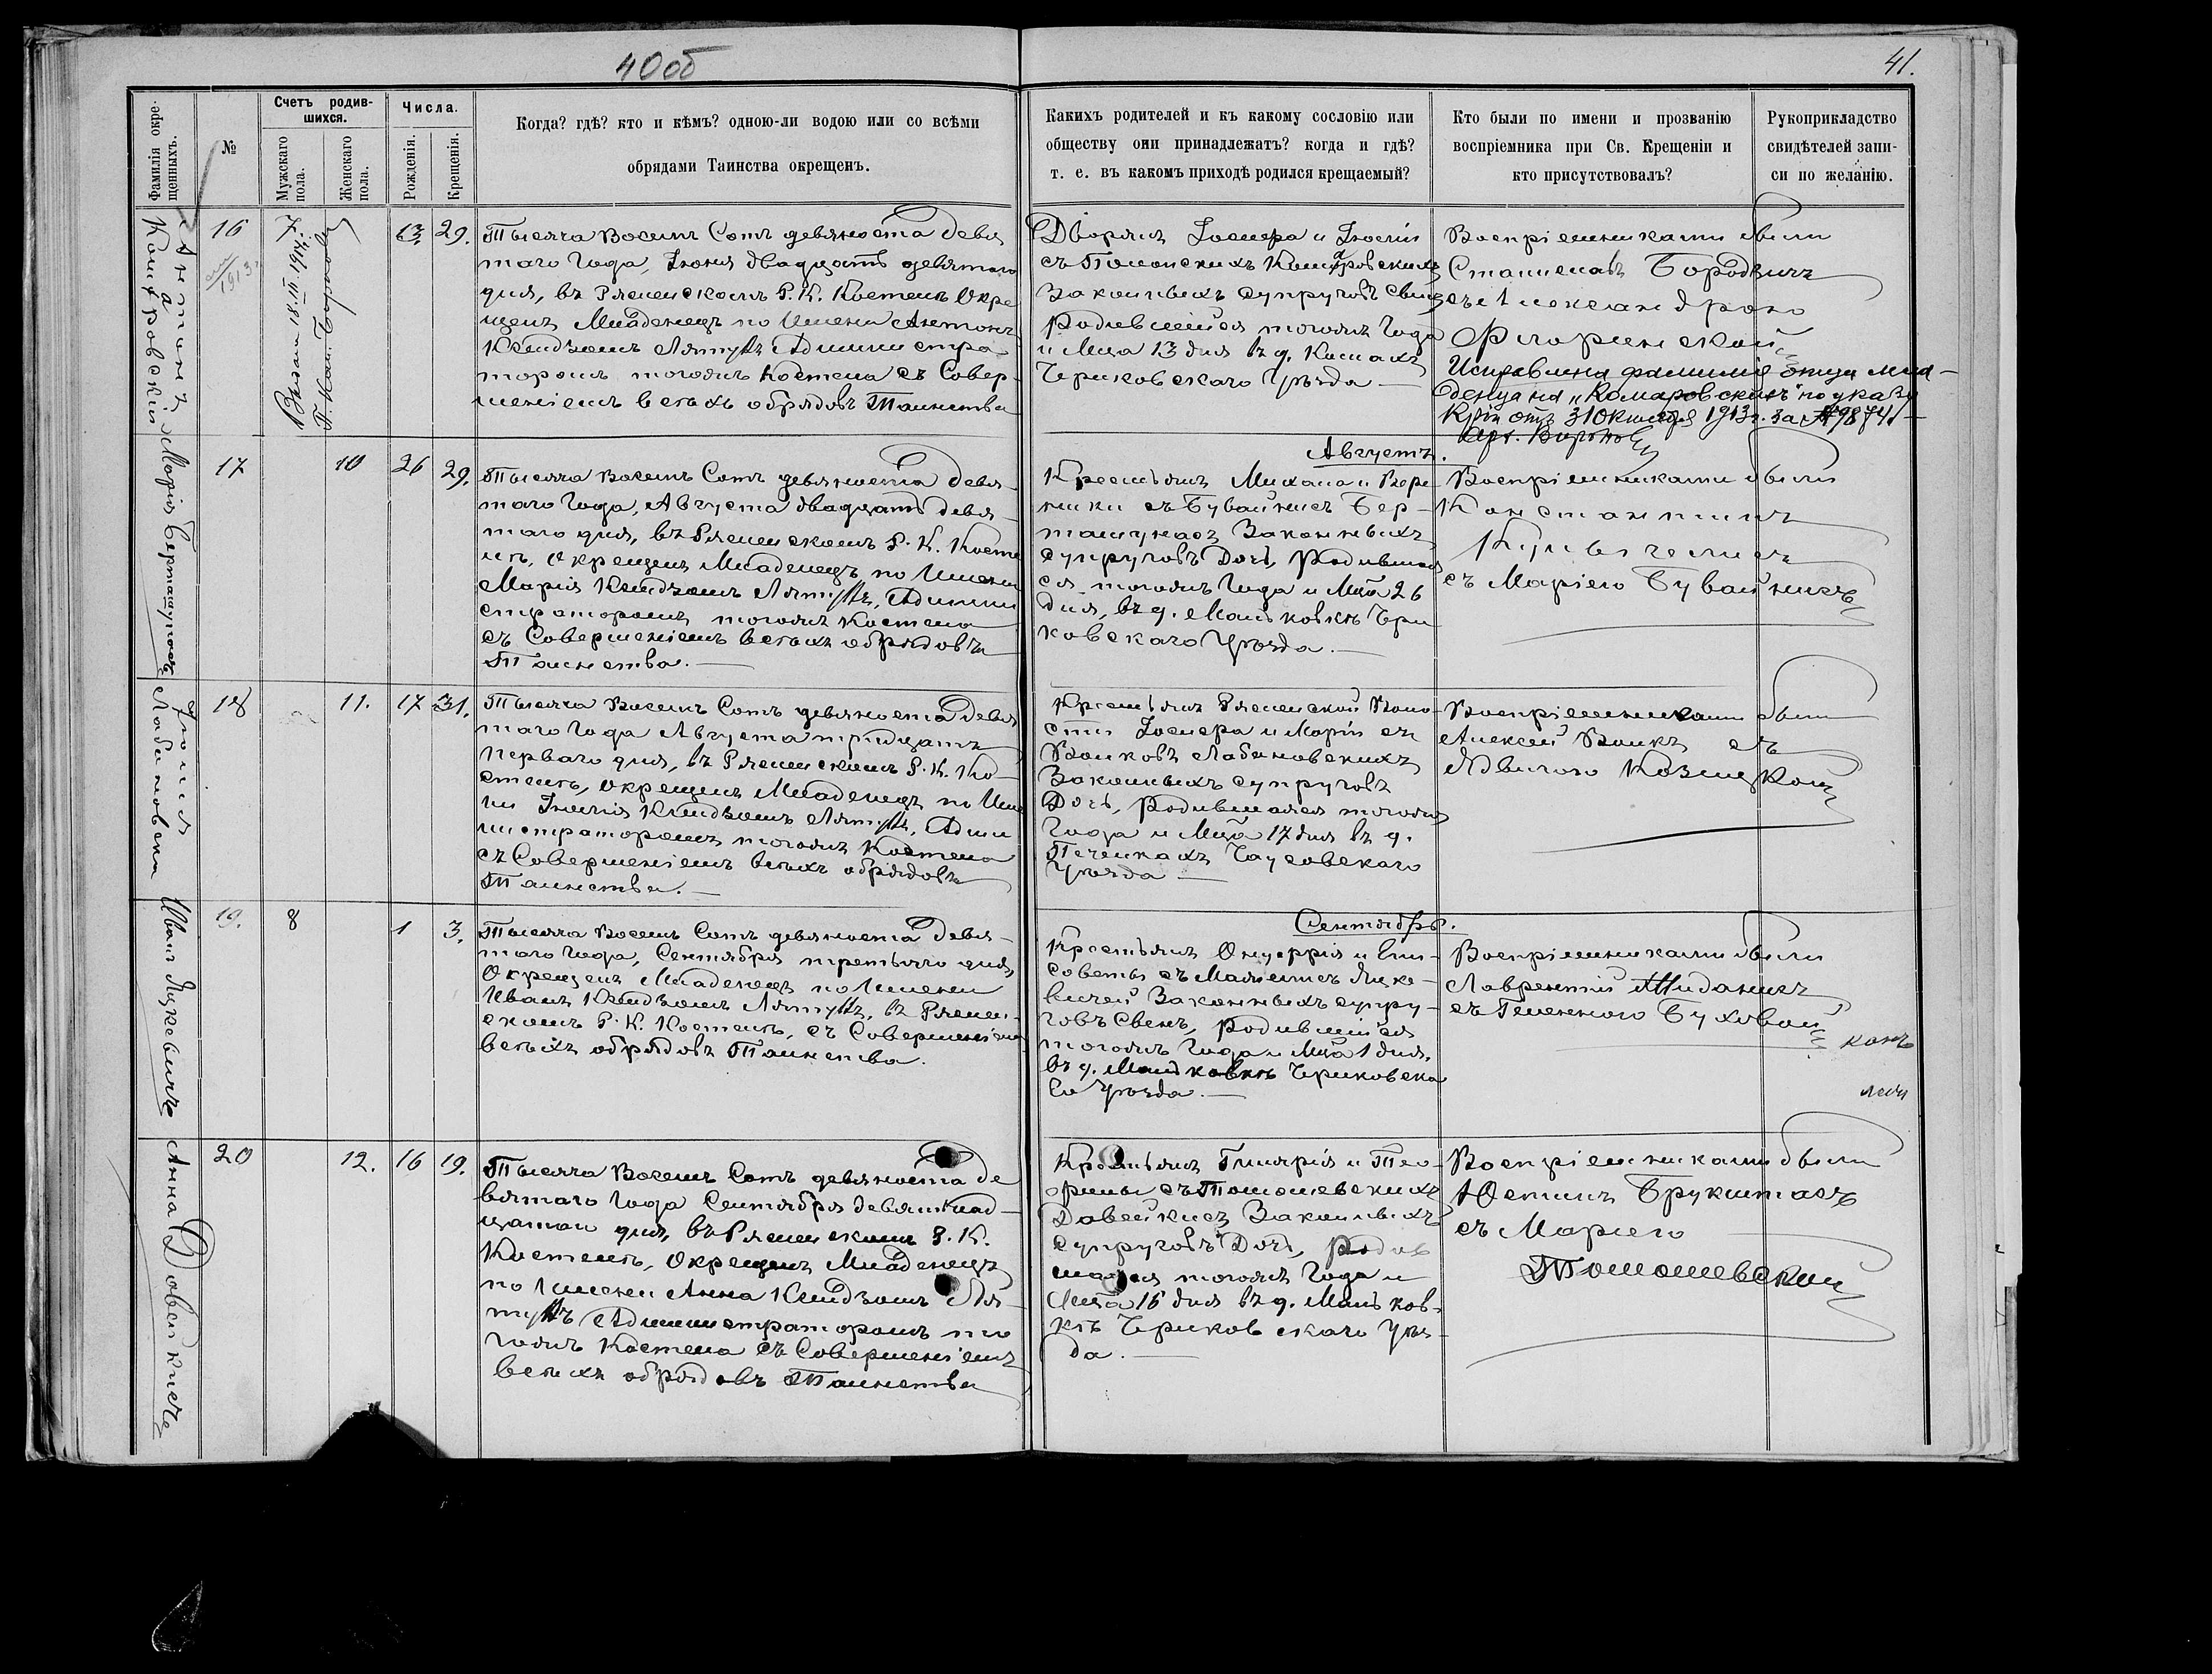 40об
41.
Фамилія окре-
щенныхъ.
№
Счетъ родив-
шихся.
Мужскаго
пола.
Женскаго
пола.
Числа.
Рожденія.
Крещенія.
Когда? гдѣ? кто и кѣмъ? одною-ли водою или со всѣми
обрядами Таинства окрещенъ.
Какихъ родителей и къ какому сословію или
обществу они принадлежатъ? когда и гдѣ?
т. е. въ какомъ приходѣ родился крещаемый?
Кто были по имени и прозванію
воспріемника при Св. Крещеніи и
кто присутствовалъ?
Рукоприкладство
свидѣтелей запи-
си по желанію.
Антонъ
Комаровскій
16
1913 г
7
18 III 1914 г.
13
29.
Тысяча Восемь Сотъ девяноста девя
таго Года, Іюня двадцать девятаго
дня, въ Рясенскомъ Р. К. Костелѣ Окре
щенъ Младенецъ по Имени Антонъ
Ксендзомъ Админи стра
торомъ тогожъ Костела съ Совер-
шеніемъ всѣхъ обрядовъ Таинства
Дворянъ Іосифа и Іюліи
съ Полонскихъ Комаровскихъ
Законныхъ Супруговъ Сынъ
Родившійся тогожъ Года
и Мца 13 дня въ д.
Чериковскаго Уѣзда —
Воспріемниками были
Станиславъ Бородзичъ
съ Александрою
Флорянской
Исправлена фамилія отца мла-
денца на „Комаровскихъ" по указу
отъ 31 Октября 1913 г. за № 9874
Августъ.
Марія Берташунасъ
17
10
26
29.
Тысяча Восемь Сотъ девяноста девя-
таго Года, Августа двадцать девя-
таго дня, въ Рясенскомъ Р. К. Косте
лѣ, Окрещенъ Младенецъ по Имени
Марія Ксендзомъ Админи
страторомъ тогожъ Костела
съ Совершеніемъ всѣхъ обрядовъ
Таинства. —
Крестьянъ Михала и Веро
ники съ Бувайнисъ Бер-
ташунасъ Законныхъ
Супруговъ Дочь, Родившая
ся тогожъ Года и Мца 26
дня, въ д. Маньковкѣ Чери
ковскаго Уѣзда. —
Воспріемниками были
Константинъ
съ Маріею Бувайнисъ
Іюлія
Лабановска
18
11.
17
31.
Тысяча Восемь Сотъ девяноста девя
таго Года Августа тридцать
перваго дня, въ Рясенскомъ Р. К. Ко-
стелѣ, Окрещенъ Младенецъ по Име
ни Іюлія Ксендзомъ Адми
нистраторомъ тогожъ Костела
съ Совершеніемъ всѣхъ обрядовъ
Таинства. —
Крестьянъ Рясенской Воло-
сти Іосифа и Маріи съ
Волковъ Лабановскихъ
Законныхъ Супруговъ
Дочь, Родившаяся тогожъ
Года и Мца 17 дня въ д.
Печенкахъ Чаусовскаго
Уѣзда —
Воспріемниками были
Алексей Волкъ съ
Ядвигою
Сентябрь.
Иванъ Яцкевичъ
19.
8
1
3.
Тысяча Восемь Сотъ девяноста девя-
таго Года, Сентября третьяго дня
Окрещенъ Младенецъ по Имени
Иванъ Ксендзомъ въ Рясен-
скомъ Р. К. Костелѣ, съ Совершеніемъ
всѣхъ обрядовъ Таинства.
Крестьянъ Онуфрія и Ели-
саветы съ Яцке-
вичей Законныхъ супру-
говъ Сынъ, Родившійся
тогожъ Года и Мца 1 дня,
въ д. Маньковкѣ Чериковска
го Уѣзда. —
Воспріемниками были
Лаврентій
съ Геленною
Анна Довейкисъ
20
12.
16
19.
Тысяча Восемь Сотъ девяноста де
вятаго Года Сентября девятнад-
цатаго дня, въ Рясенскомъ Р. К.
Костелѣ, Окрещенъ Младенецъ
по Имени Анна Ксендзомъ
Администраторомъ то
гожъ Костела съ Совершеніемъ
всѣхъ обрядовъ Таинства
Крестьянъ Гилярія и Тео-
филы съ Томошевскихъ
Довейкисъ Законныхъ
Супруговъ Дочь, Родив
шаяся тогожъ Года и
Мца 16 дня въ д. Маньков-
кѣ Чериковскаго Уѣз-
да. —
Воспріемниками были
Юстинъ
съ Маріею
Томошевской